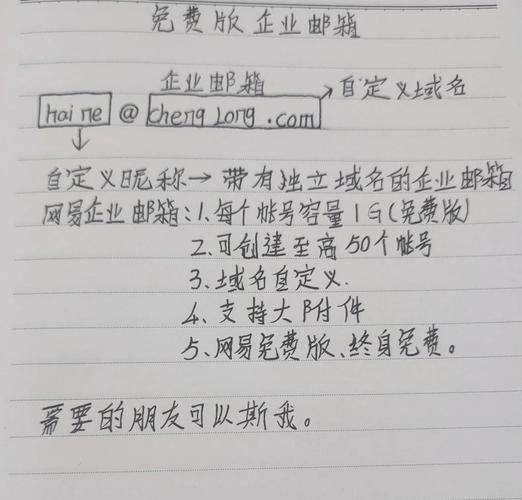 免费版企业邮箱
企业邮箱 → 自定义域名
haine @ chenglong.com
↓
自定义昵称→带有独立域名的企业邮箱
网易企业邮箱:1、每个帐号容量1G(免费版)
2、可创建至高50个帐号
3、域名自定义.
4、支持大附件
5、网易免费版、终身免费。
需要的朋友可以斯我。